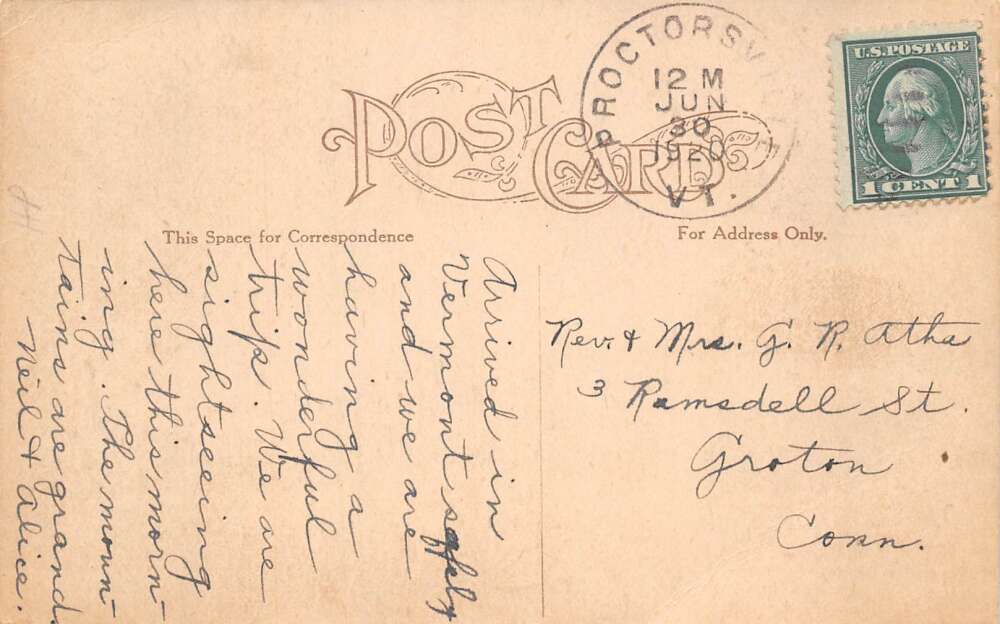 POST CARD
PROCTORSVILLE
12 M
JUN
30
1920
VT.
U.S. POSTAGE
1 CENT 1
This Space for Correspondence
For Address Only.
Arrived in
Vermont safely
and we are
having a
wonderful
trip. We are
sightseeing
here this morn-
ing. The moun-
tains are grand.
Neil & Alice.
Rev. & Mrs. G. R. Atha
3 Ramsdell St.
Groton
Conn.